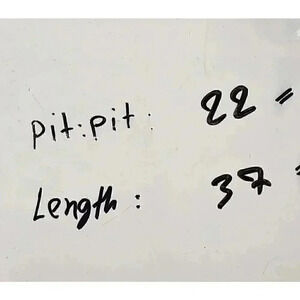 pit:pit. 22"
Length: 37"